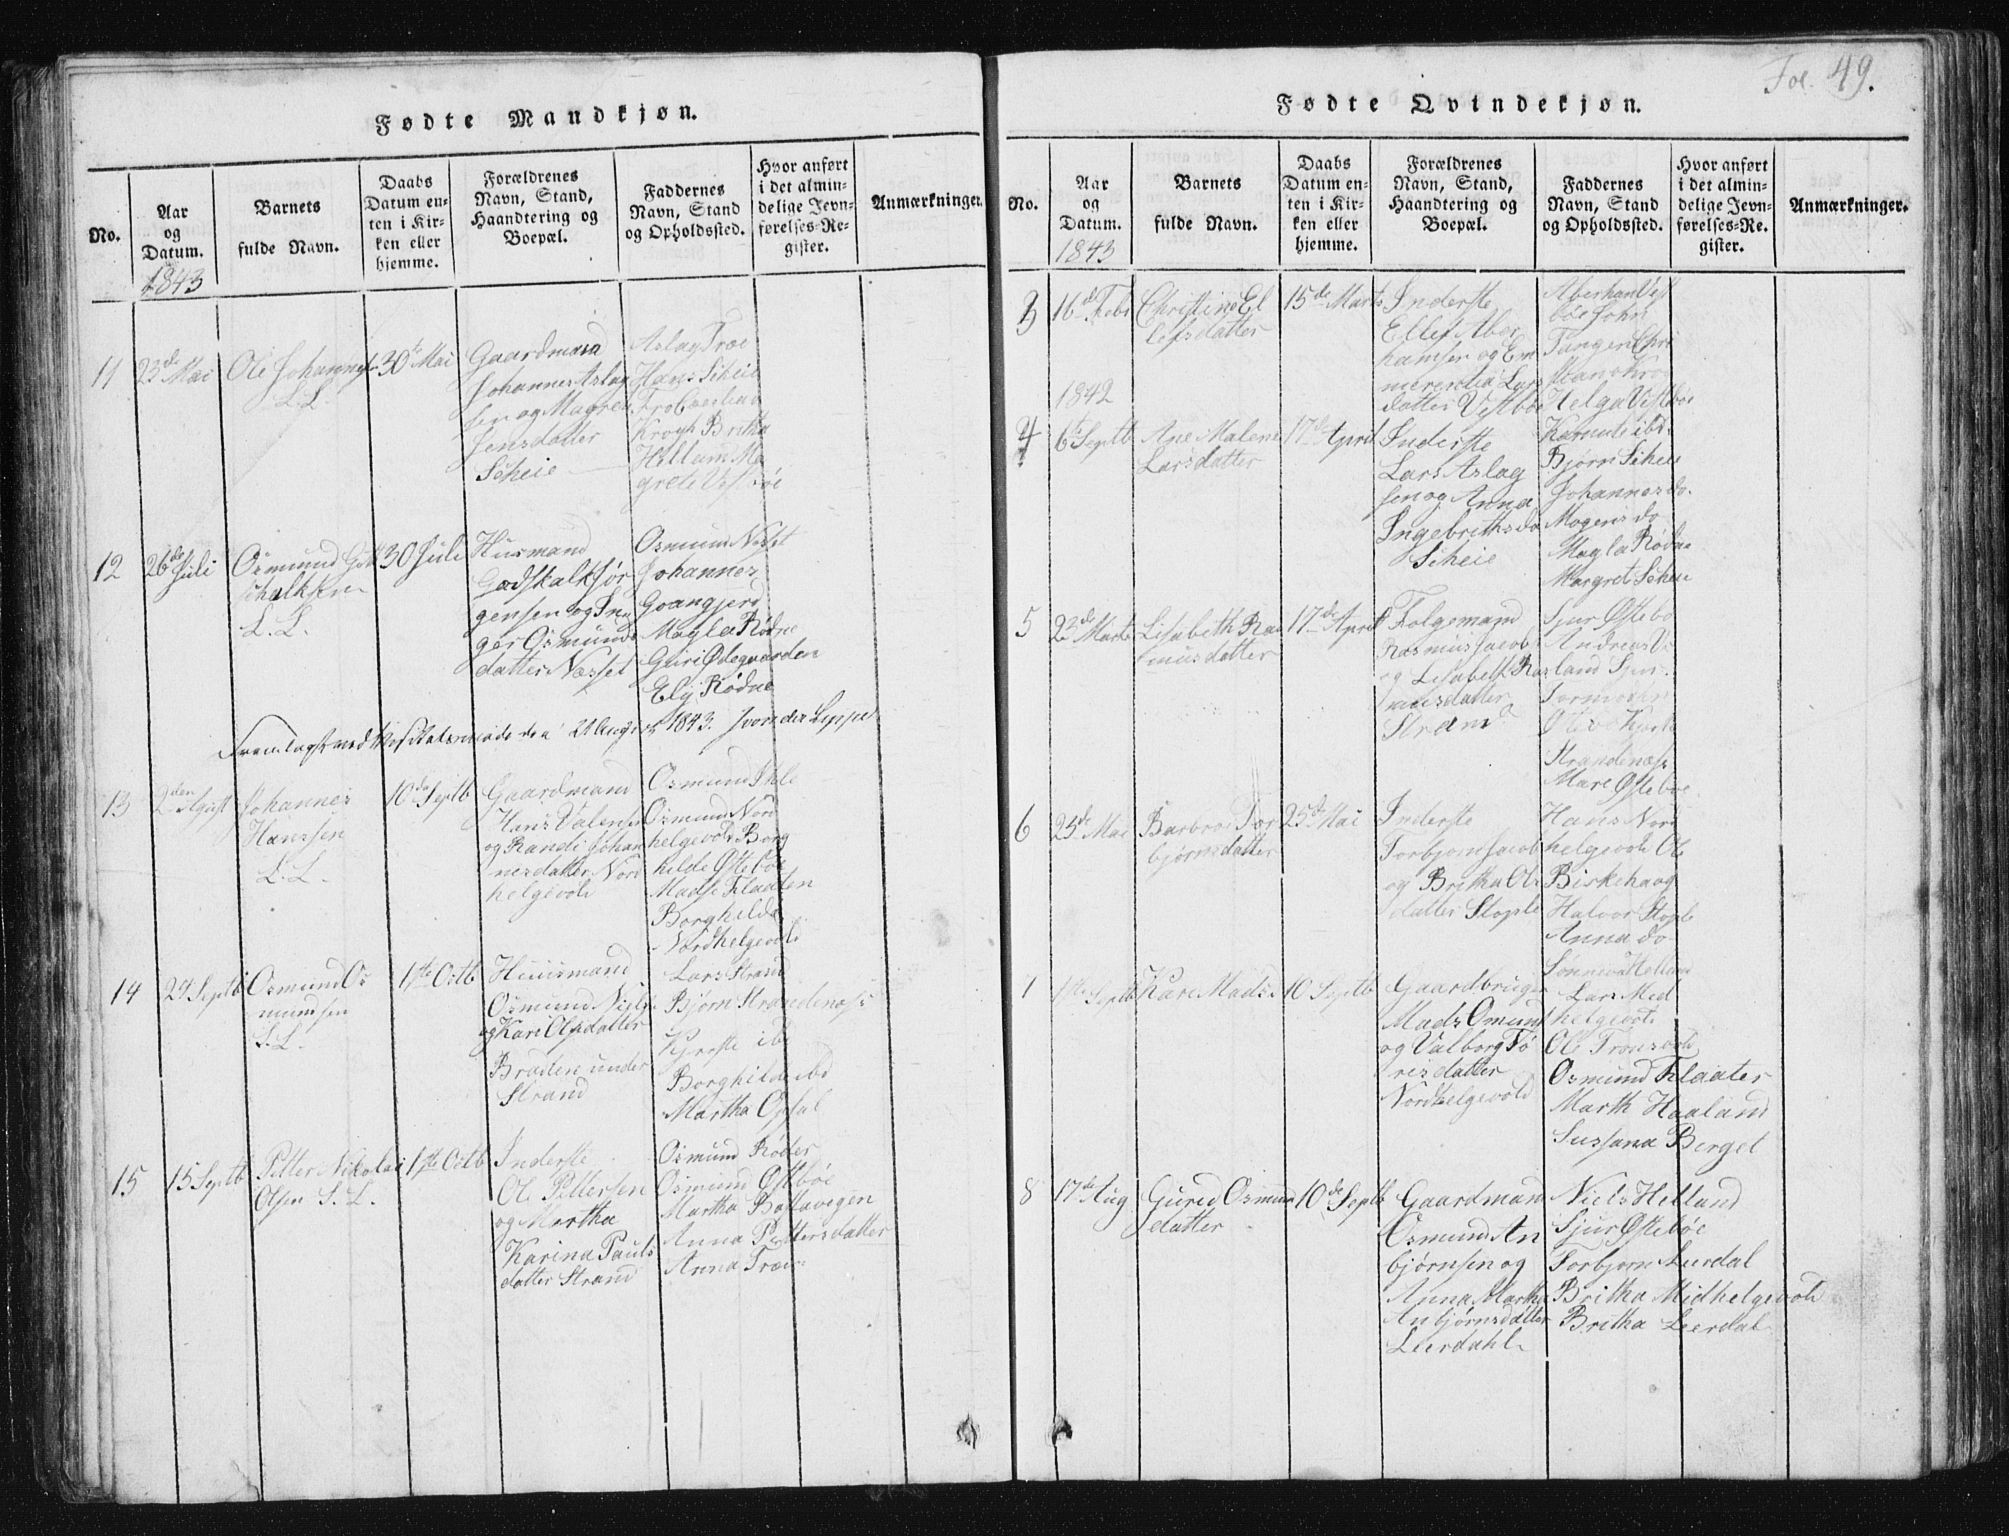 Fol. 49.
Fødte Mandkjøn.
No.
Aar
og
Datum.
Barnets
fulde Navn.
Daabs
Datum en-
ten i Kir-
ken eller
hjemme.
Forældrenes
Navn, Stand,
Haandtering og
Boepæl.
Faddernes
Navn, Stand
og Opholdssted.
Hvor anført
i det almin-
delige Jevn-
førelses-Re-
gister.
Anmærkninger.
1843
11
23de Mai
Ole Johanness
L. L.
30te Mai
Gaardmand
Johannes Aslag
sen og Magre
Jensdatter
Scheie
Aslag Træe
Hans Scheie
Krogh Britha
Hellum Ma
grete Vestbøe
12
26de Juli
Osmund Gott
schalksen
L. L.
30 Juli
Huusmand
Godskalk Jør
gensen og In
ger Osmunds
datter Næsset
Osmund Næsset
Johannes
Magla Rødne
Guri Ødegaarden
Eli Rødne
Fremlagt ved Visitatsmøde den 21 August 1843. von der Lippe
13
2den August
Johannes
Hanssen
L. L.
10de Septb
Gaardmand
Hans Valensen
og Randi Johan
nesdatter Nord
helgevold
Osmund Ihle
Osmund Nord
helgevold Borg
hilde Østebøe
Mads Flaaten
Borghilda
Nordhelgevold
14
24 Septb
Osmund Os
mundsen
L. L.
1ste Octb
Huusmand
Osmund Niels
og Kari Olsdatter
Braden under
Strand
Lars Strand
Bjørn Strandenæs
Kjerste ibd
Borghilde ibd
Martha Opsal
15
15 Septb
Petter Nikolai
Olsen L. L.
1ste Octb
Inderste
Ole Pettersen
og Martha
Karina Pauls
datter Strand
Osmund Røder
Osmund Østbøe
Martha Bastavegen
Anna Pettersdatter
Anna Træe
Fødte Qvindekjøn.
No.
Aar
og
Datum.
Barnets
fulde Navn.
Daabs
Datum en-
ten i Kir-
ken eller
hjemme.
Forældrenes
Navn, Stand,
Haandtering og
Boepæl.
Faddernes
Navn, Stand
og Opholdssted.
Hvor anført
i det almin-
delige Jevn-
førelses-Re-
gister.
Anmærkninger.
1843
3
16de Febr
Christine El
lefsdatter
15de Marts
Inderste
Ellef Aber
hamsen og Em
merentia Lars
datter Vestbøe
Aberham Vest
bøe John
Tangen Chri
Helga Vestbøe
1842
4
6te Septb
Ane Malene
Larsdatter
17de April
Inderste
Lars Aslag
sen og Anna
Ingebrithsda
Scheie
Bjørn Scheie
Johannes do.
Mogens do
Magla Rødne
Margret Scheie
5
23de Marts
Lisabeth Ras
musdatter
17de April
Folgemand
Rasmus Jacob
og Lisabeth Ras
musdatter
Strand
Sjur Østebø
Andreas V
land Sjur
Tormoden
Strandenæs
Mare Østebøe
6
25de Mai
Barbroe Tor
bjørnsdatter
25de Mai
Inderste
Torbjørn Jacob
og Britha Ols
datter Stople
Hans Nord
helgevold Ole
Birkehaog
Halvor Stople
Anna do
1
1ste Septb
Kare Mads
10 Septb
Gaardbruger
Mads Omund
og Valborg Tø
risdatter
Nordhelgevold
Lars Med
helgevold
Ole Tronsvold
Osmund Flaater
Marth Haaland
Sussana Berget
8
17de Aug
Gured Osmun
datter
10de Septb
Gaardmand
Osmund An
bjørnsen og
Anna Martha
Anbjørnsdatter
Leerdahl
Niels Helland
Sjur Østebøe
Torbjørn Leerdal
Britha Midhelgevold
Britha Leerdal